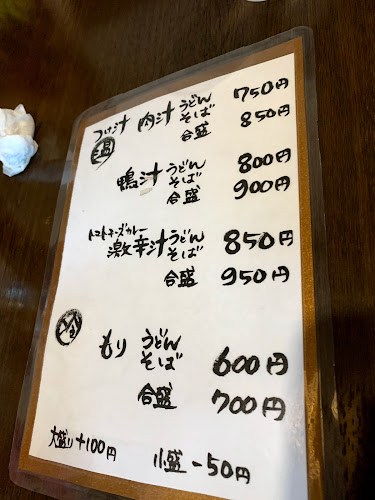 つけ汁 肉汁 うどん 750円
温 そば
合盛 850円
鴨汁 うどん 800円
そば
合盛 900円
トマトチーズカレー
激辛汁 うどん 850円
そば
合盛 950円
冷 もり うどん 600円
そば
合盛 700円
大盛り+100円 小盛-50円